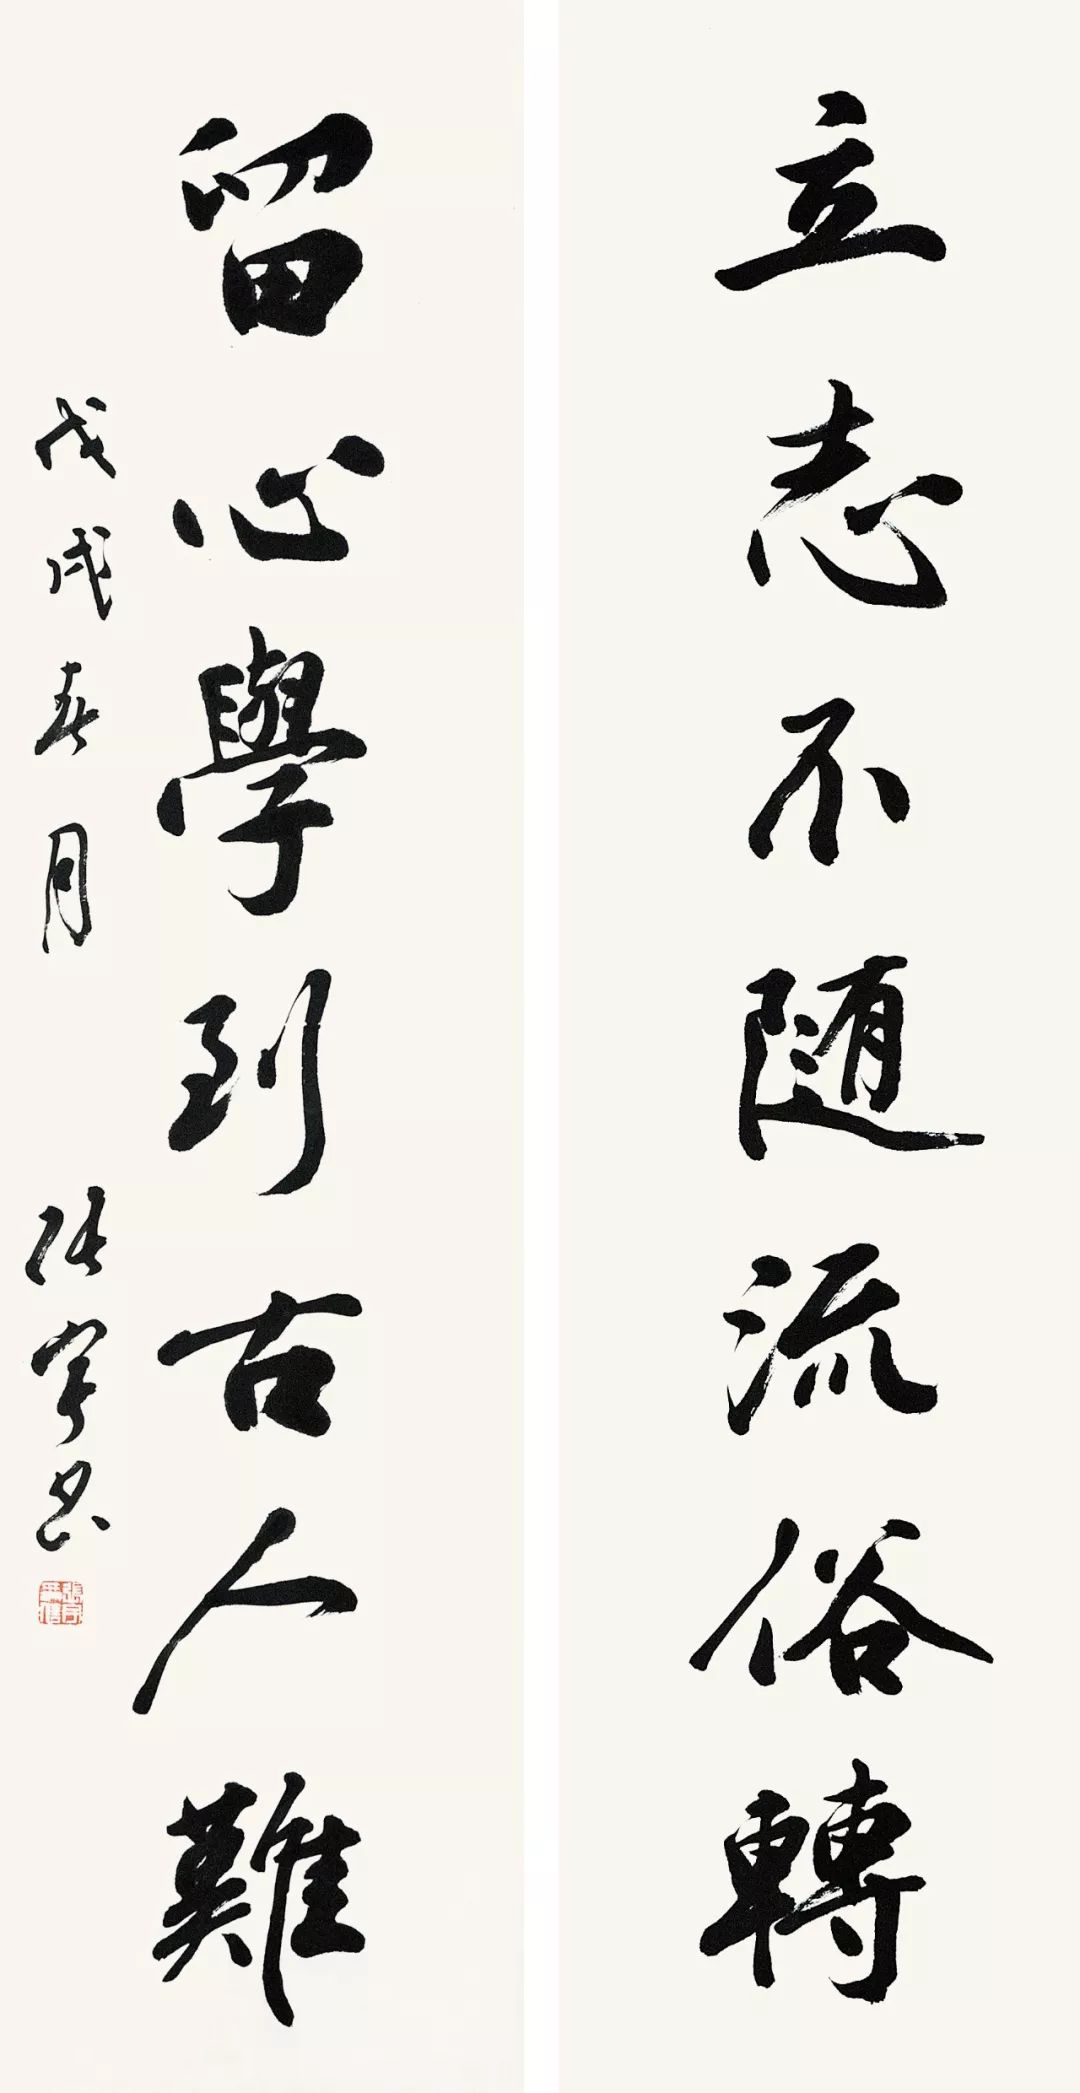 立志不随流俗轉
留心學到古人難
戊戌春月 張